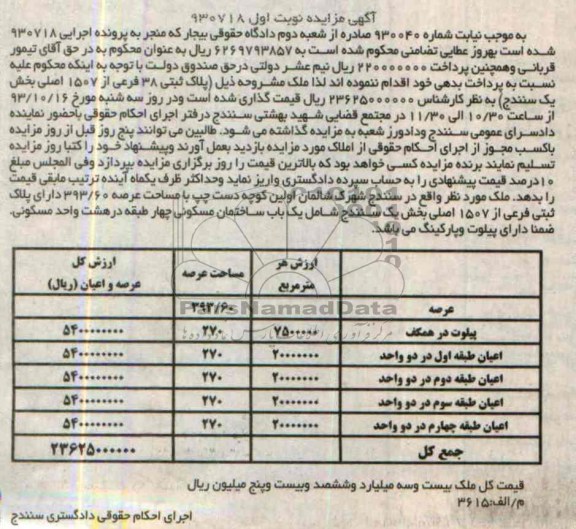 آگهی مزایده نوبت اول ۹۳۰۷۱۸
به موجب نیابت شماره ۹۳۰۰۴۰ صادره از شعبه دوم دادگاه حقوقی بیجار که منجر به پرونده اجرایی ۹۳۰۷۱۸
شده است بهروز عطایی تضامنی محکوم شده است به ۶۲۶۹۷۹۳۸۵۷ ریال به عنوان محکوم به در حق آقای تیمور
قربانی وهمچنین پرداخت ۲۲۰۰۰۰۰۰۰ ریال نیم عشر دولتی درحق صندوق دولت با توجه به اینکه محکوم علیه
نسبت به پرداخت بدهی خود اقدام ننموده اند لذا ملک مشروحه ذیل (پلاک ثبتی ۳۸ فرعی از ۱۵۰۷ اصلی بخش
یک سنندج) به نظر کارشناس ۲۳۶۲۵۰۰۰۰۰۰ ریال قیمت گذاری شده است ودر روز سه شنبه مورخ ۹۳/۱۰/۱۶
از ساعت ۱۰/۳۰ الی ۱۱/۳۰ در مجتمع قضایی شهید بهشتی سنندج درفتر اجرای احکام حقوقی باحضور نماینده
دادسرای عمومی سنندج ودادورز شعبه به مزایده گذاشته می شود. طالبین می توانند پنج روز قبل از روز مزایده
باکسب مجوز از اجرای احکام حقوقی از املاک مورد مزایده بازدید بعمل آورند وپیشنهاد خود را کتبا روز مزایده
تسلیم نمایند برنده مزایده کسی خواهد بود که بالاترین قیمت را روز برگزاری مزایده بپردازد وفی المجلس مبلغ
۱۰درصد قیمت پیشنهادی را به حساب سپرده دادگستری واریز نماید وحداکثر ظرف یکماه آینده ترتیب مابقی قیمت
را بدهد. ملک مورد نظر واقع در سنندج شهرک شالمان اولین کوچه دست چپ با مساحت عرصه ۳۹۳/۶۰ دارای پلاک
ثبتی فرعی از ۱۵۰۷ اصلی بخش یک سنندج شامل یک باب ساختمان مسکونی چهار طبقه درهشت واحد مسکونی.
ضمنا دارای پیلوت وپارکینگ می باشد.
ارزش هر مترمربع | مساحت عرصه | ارزش کل عرصه و اعیان (ریال)
عرصه | ۳۹۳/۶۰
پیلوت در همکف | ۷۵۰۰۰۰۰ | ۲۷۰ | ۵۴۰۰۰۰۰۰۰۰
اعیان طبقه اول در دو واحد | ۲۰۰۰۰۰۰۰ | ۲۷۰ | ۵۴۰۰۰۰۰۰۰۰
اعیان طبقه دوم در دو واحد | ۲۰۰۰۰۰۰۰ | ۲۷۰ | ۵۴۰۰۰۰۰۰۰۰
اعیان طبقه سوم در دو واحد | ۲۰۰۰۰۰۰۰ | ۲۷۰ | ۵۴۰۰۰۰۰۰۰۰
اعیان طبقه چهارم در دو واحد | ۲۰۰۰۰۰۰۰ | ۲۷۰ | ۵۴۰۰۰۰۰۰۰۰
جمع کل | ۲۳۶۲۵۰۰۰۰۰۰
ParsNamadData
قیمت کل ملک بیست وسه میلیارد وششصد وبیست وپنج میلیون ریال
م/الف:۳۶۱۵
اجرای احکام حقوقی دادگستری سنندج